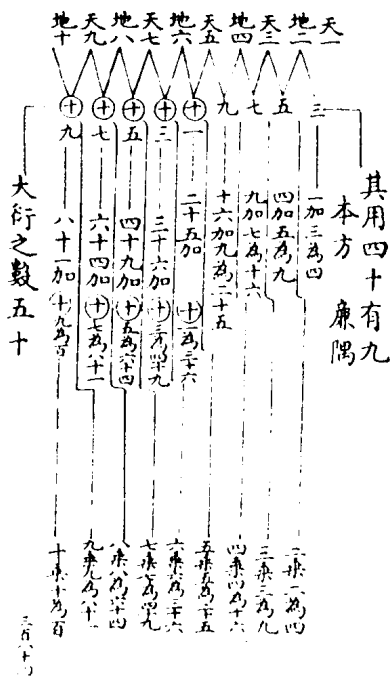 天一
地二
天三
地四
天五
地六
天七
地八
天九
地十
其用四十有九
本方 廉隅
三
五
七
九
十一
十三
十五
十七
十九
一加三為四
四加五為九
九加七為十六
十六加九為二十五
二十五加十一為三十六
三十六加十三為四十九
四十九加十五為六十四
六十四加十七為八十一
八十一加十九為百
二乘二為四
三乘三為九
四乘四為十六
五乘五為二十五
六乘六為三十六
七乘七為四十九
八乘八為六十四
九乘九為八十一
十乘十為百
大衍之數五十